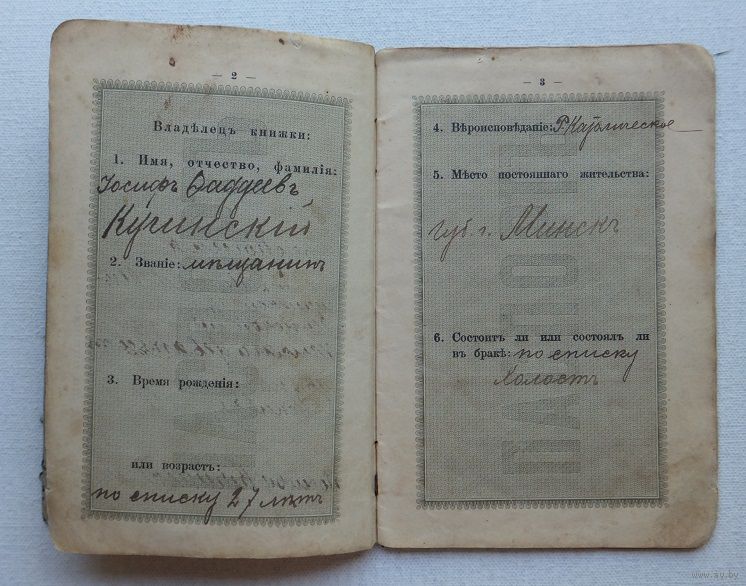 — 2 —
Владѣлецъ книжки:
1. Имя, отчество, фамилія:
Іосифъ Фаддеевъ
Кучинскій
2. Званіе: мѣщанинъ
3. Время рожденія:
или возрастъ:
по списку 27 лѣтъ
— 3 —
4. Вѣроисповѣданіе: Р. Католическое
5. Мѣсто постояннаго жительства:
губ. г. Минскъ
6. Состоитъ ли или состоялъ ли
въ бракѣ: по списку
Холостъ
www.ay.by